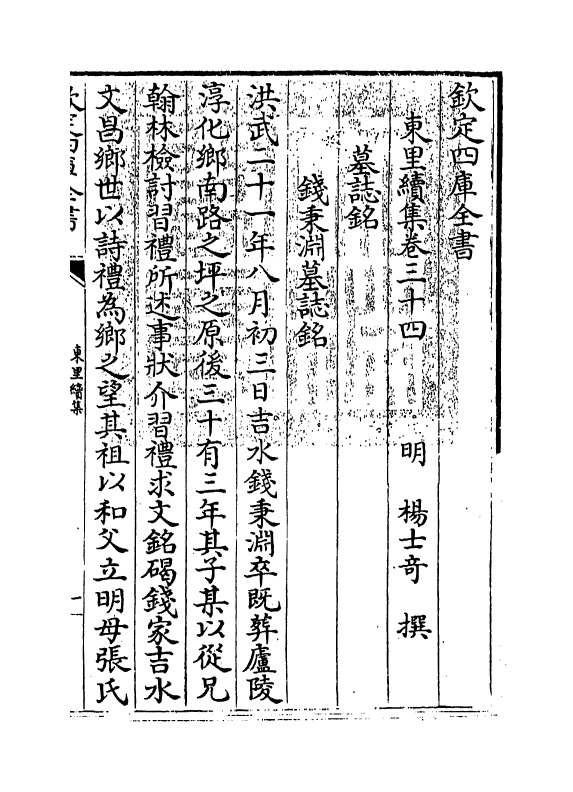 欽定四庫全書
東里續集卷三十四　明　楊士奇　撰
墓誌銘
錢秉淵墓誌銘
洪武二十一年八月初三日吉水錢秉淵卒既葬廬陵
淳化鄉南路之坪之原後三十有三年其子某以從兄
翰林檢討習禮所述事狀介習禮求文銘碣錢家吉水
文昌鄉世以詩禮為鄉之望其祖以和父立明母張氏
欽定四庫全書
東里續集
一